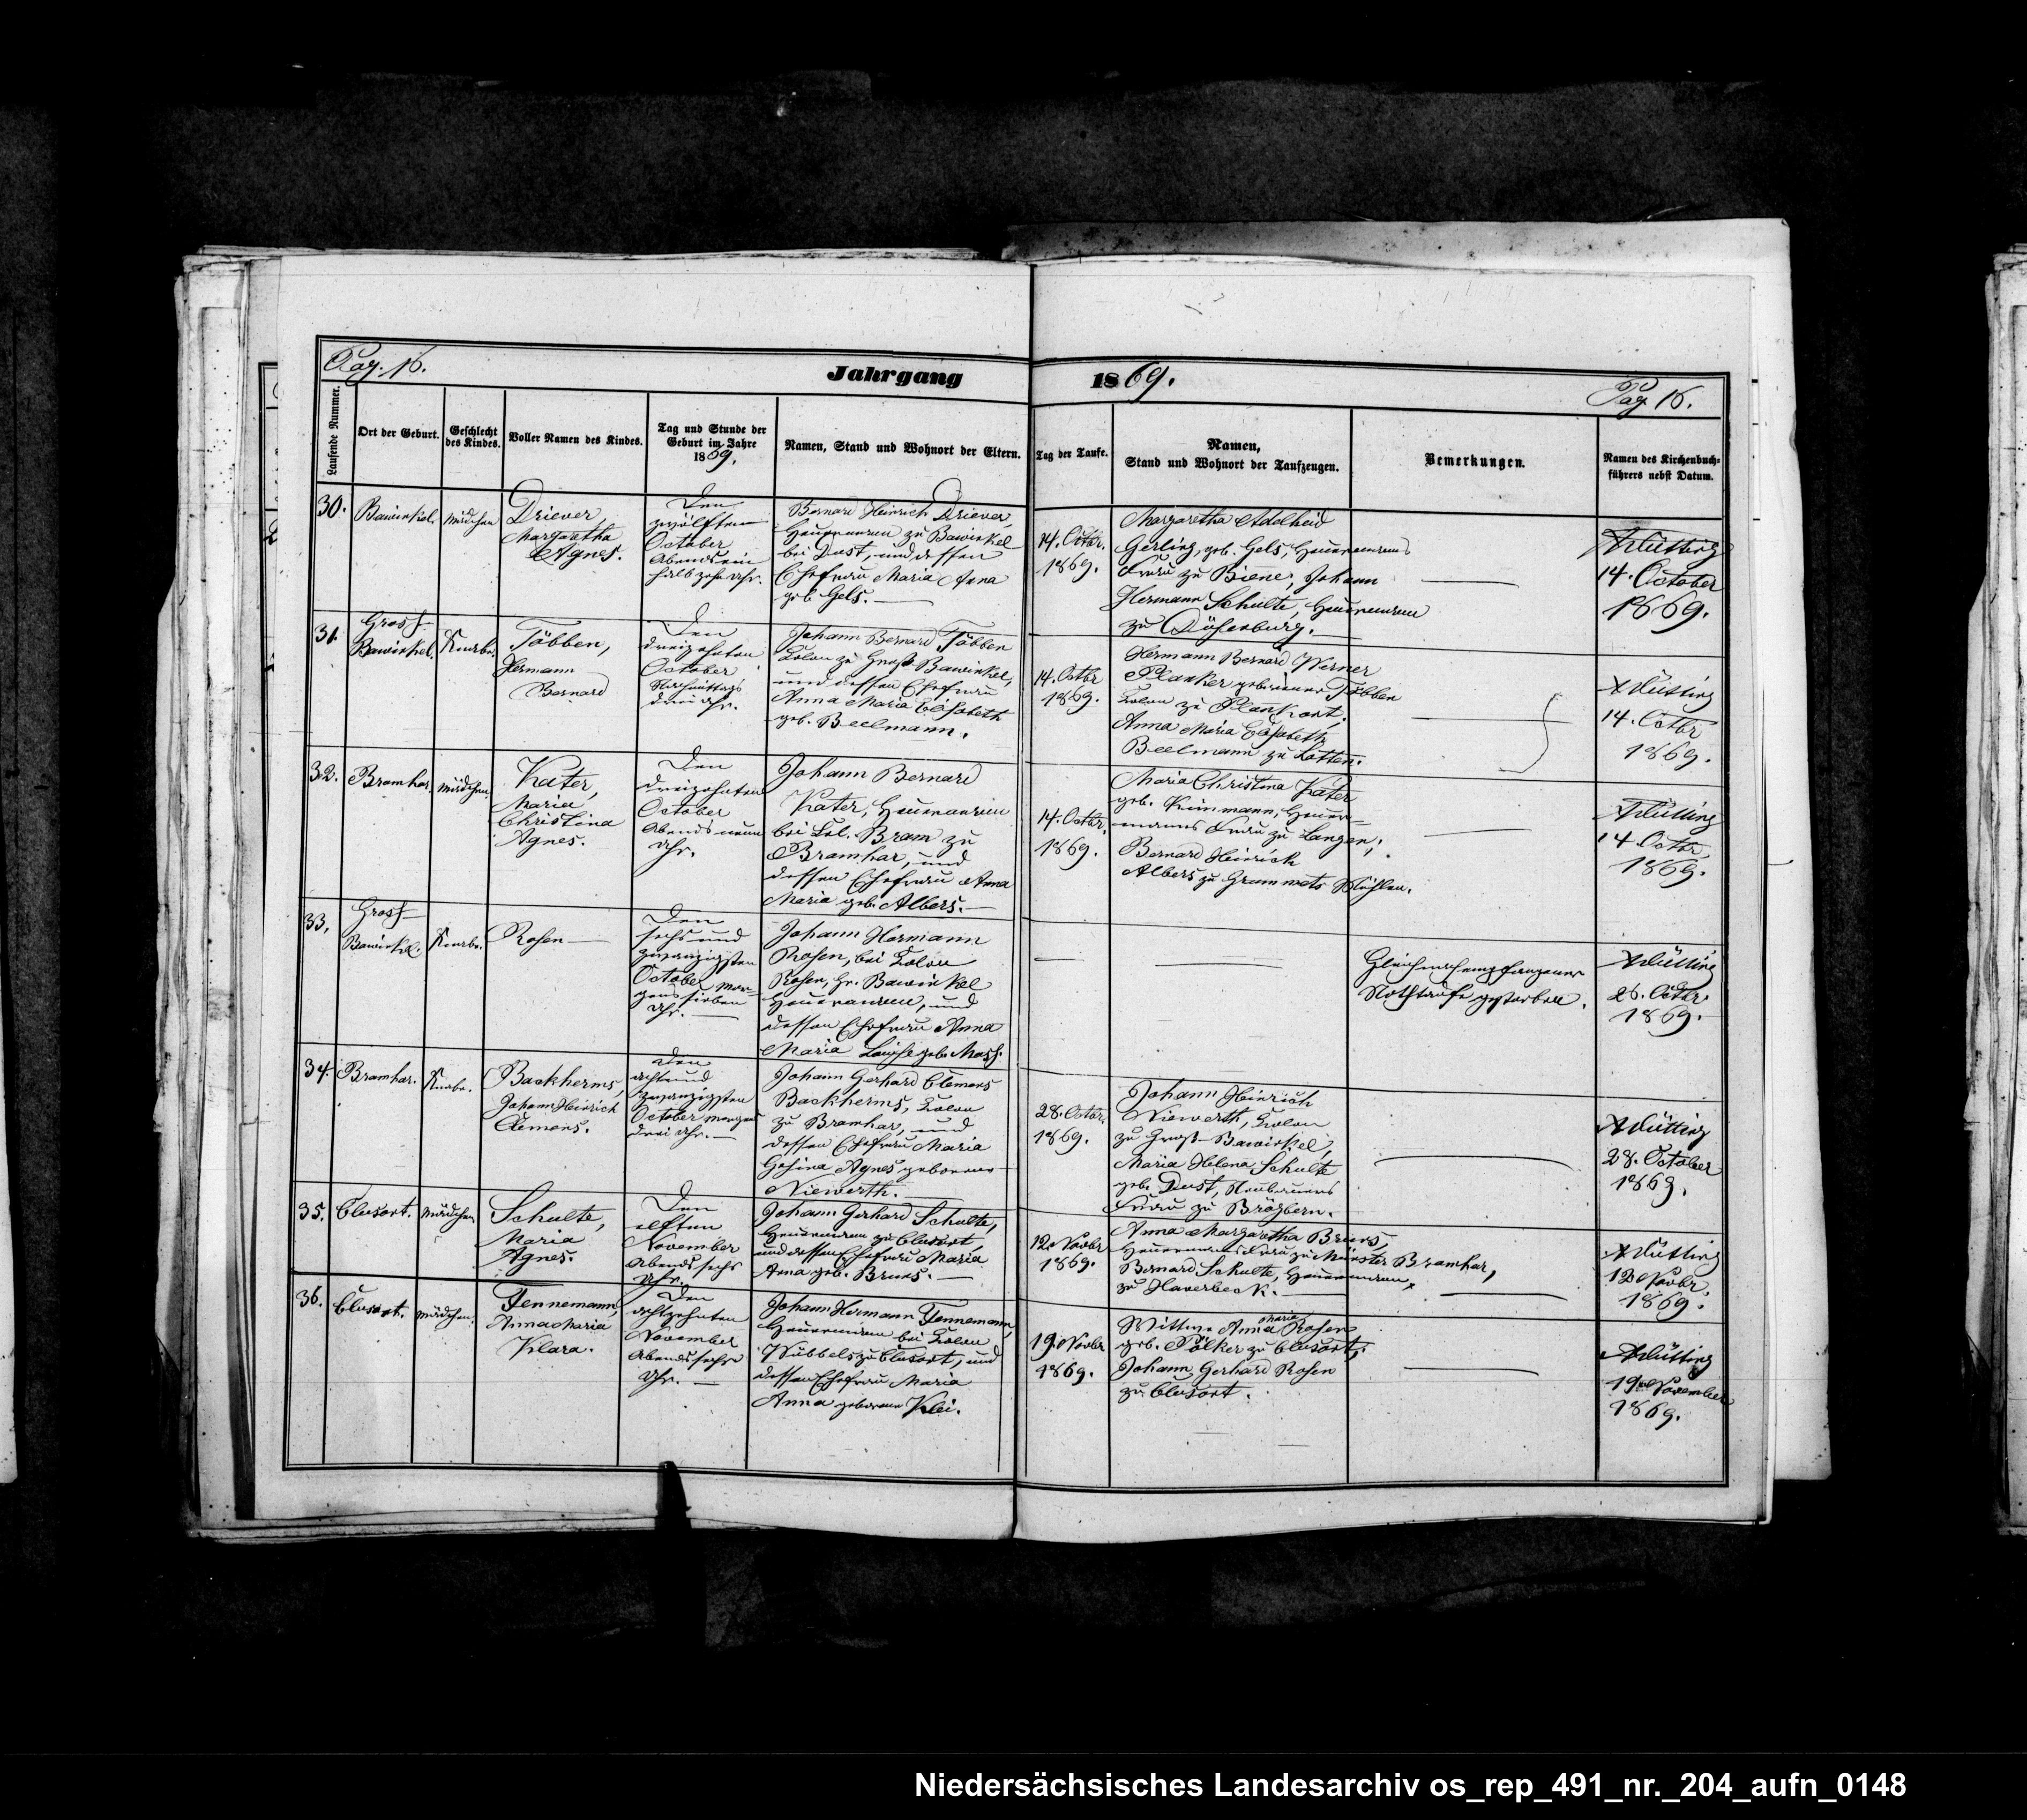 Pag. 16.
Jahrgang 1869.
Pag. 16.
Laufende Nummer.
Ort der Geburt.
Geschlecht
des Kindes.
Voller Namen des Kindes.
Tag und Stunde der
Geburt im Jahre
1869.
Namen, Stand und Wohnort der Eltern.
Tag der Taufe.
Namen,
Stand und Wohnort der Taufzeugen.
Bemerkungen.
Namen des Kirchenbuch-
führers nebst Datum.
30.
Bawinkel.
Mädchen
Driever,
Margaretha
Agnes.
Den
zwölften
October
Abends ein
halb zehn Uhr.
Bernard Heinrich Driever,
Heuermann zu Bawinkel
bei Dust, und dessen
Ehefrau Maria Anna
geb. Gels.
14. Octbr.
1869.
Margaretha Adelheid
Gerling, geb. Gels, Heuermanns
Frau zu Biene; Johann
Hermann Schulte, Heuermann
zu
14. October
1869.
31.
Gross-
Bawinkel.
Knabe.
Többen,
Hermann
Bernard
Den
dreizehnten
October
Nachmittags
drei Uhr.
Johann Bernard Többen
Colon zu Groß-Bawinkel,
und dessen Ehefrau
Anna Maria Elisabeth
geb. Beelmann.
14. Octbr
1869.
Hermann Bernard Werner
Planker geborener Többen
Colon zu Plankort;
Anna Maria Elisabeth
Beelmann zu Lotten.
14. Octbr
1869.
32.
Bramhar.
Mädchen.
Kater,
Maria
Christina
Agnes.
Den
dreizehnten
October
Abends neun
Uhr.
Johann Bernard
Kater, Heuermann
bei Col. Bram zu
Bramhar, und
dessen Ehefrau Anna
Maria geb. Albers.
14. Octbr.
1869.
Maria Christina Kater
geb. Heuer-
manns Frau zu Langen;
Bernard Heinrich
Albers zu Mühlen.
14 Octbr.
1869.
33.
Gross-
Bawinkel.
Knabe.
Rosen
Den
sechs und
zwanzigsten
October mor-
gens sieben
Uhr.
Johann Hermann
Rosen, bei Colon
Rosen, Gr. Bawinkel
Heuermann, und
dessen Ehefrau Anna
Maria Louise geb. Mass.
Gleich nach empfangener
Nothtaufe gestorben.
26. Octbr.
1869.
34.
Bramhar.
Knabe.
Backherms,
Johann Heinrich
Clemens.
Den
achtund
zwanzigsten
October morgens
drei Uhr.
Johann Gerhard Clemens
Backherms, Colon
zu Bramhar, und
dessen Ehefrau Maria
Gesina Agnes geborene
Niewerth.
28. Octbr.
1869.
Johann Heinrich
Niewerth, Colon
zu Gross-Bawinkel;
Maria Helena Schulte
geb. Dust, Neubauers
Frau zu Brögbern.
28. October
1869.
35.
Clusort.
Mädchen
Schulte,
Maria
Agnes.
Den
elften
November
Abends sechs
Uhr.
Johann Gerhard Schulte,
Heuermann zu Clusort
und dessen Ehefrau Maria
Anna geb. Bruns.
12. Novbr
1869.
Anna Margaretha Bruns
Heuermanns Frau zu Münster Bramhar,
Bernard Schulte, Heuermann,
zu Haverbeck.
12 Novbr.
1869.
36.
Clusort.
Mädchen.
Tennemann,
Anna Maria
Klara.
Den
achtzehnten
November
Abends sechs
Uhr.
Johann Hermann Tennemann,
Heuermann bei Colon
Wübbels zu Clusort, und
dessen Ehefrau Maria
Anna geborene Klei.
19. Novbr
1869.
Wittwe Anna Maria Rosen
geb. Pölker zu Clusort;
Johann Gerhard Rosen
zu Clusort.
19. November
1869.
Niedersächsisches Landesarchiv os_rep_491_nr._204_aufn_0148